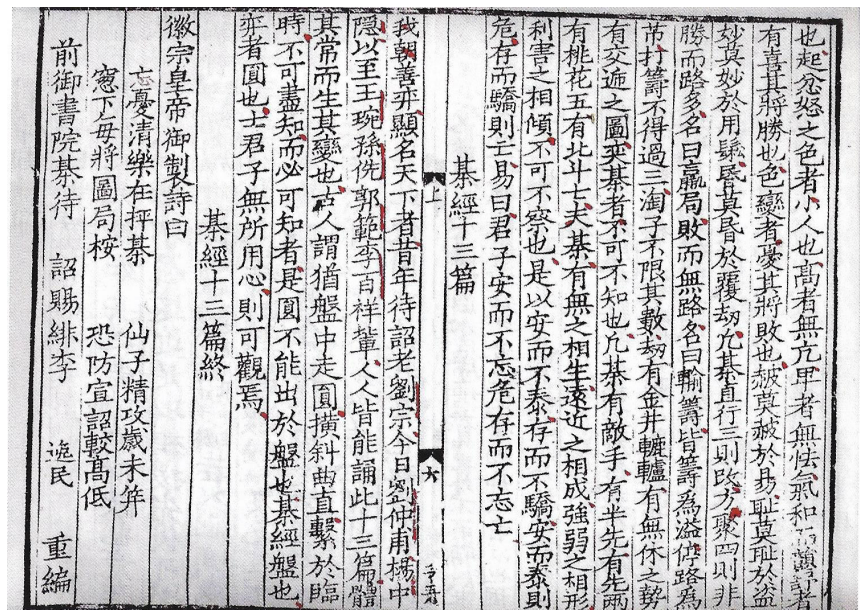 也起忿怒之色者小人也高者無亢卑者無怯氣和而韻舒者
有喜其將勝也色變者憂其將敗也赧莫赧於易耻莫耻於盜
妙莫妙於用鬆昏莫昏於覆劫凡棊直行三則改方聚四則非
勝而路多名曰贏局敗而無路名曰輸籌皆籌為溢停路為
节打籌不得過三淘子不限其數劫有金井轆轤有無休之勢
有交逓之圖奕棊者不可不知也凡棊有敵手有半先有先兩
有桃花五有北斗七夫棊有無之相生遠近之相成強弱之相形
利害之相傾不可不察也是以安而不泰存而不驕安而泰則
危存而驕則亡易曰君子安而不忘危存而不忘亡
棊經十三篇
上
六
我朝善弈顯名天下者昔年待詔老劉宗今日劉仲甫楊中
隐以至王琬孫侁郭範李百祥輩人人皆能誦此十三篇體
其常而生其變也古人謂猶盤中走圓橫斜曲直繫於臨
時不可盡知而必可知者是圓不能出於盤也棊經盤也
弈者圓也士君子無所用心則可觀焉
棊經十三篇終
徽宗皇帝御製詩曰
忘憂清樂在枰棊 仙子精攻歲未笄
窻下每將圖局桉 恐防宣詔較高低
前御書院棊待 詔賜緋李 逸民 重編